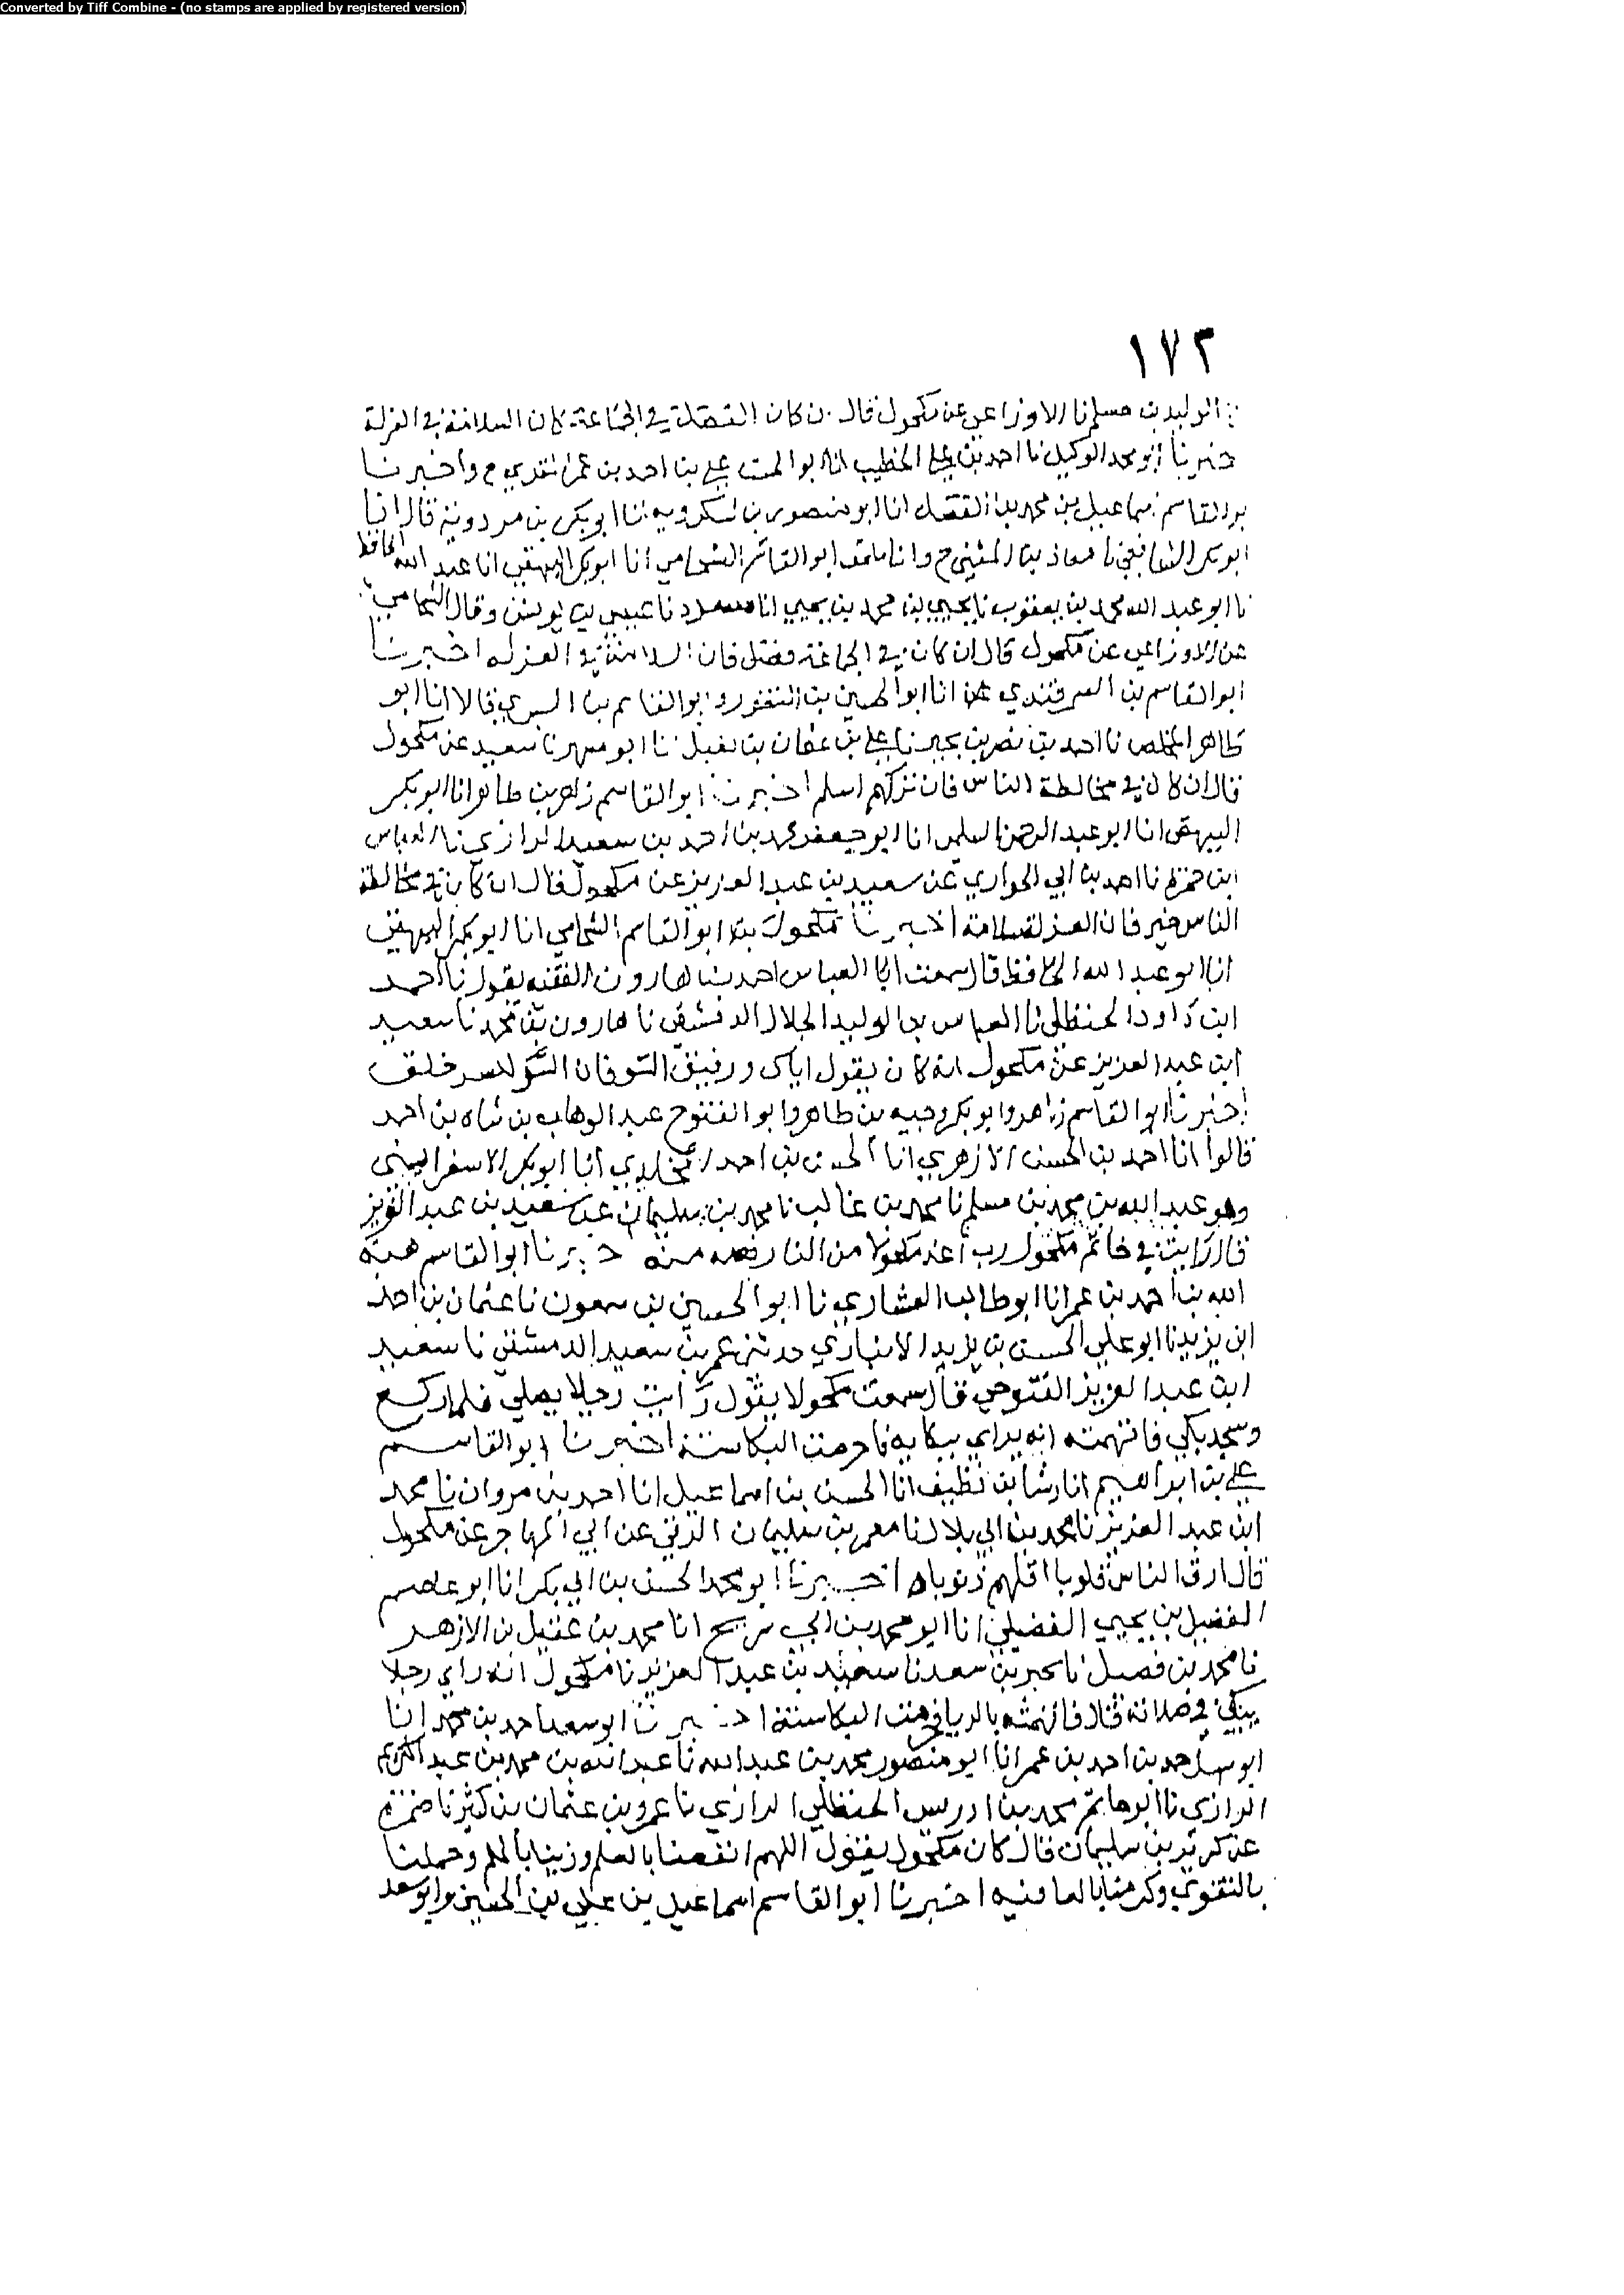 Converted by Tiff Combine - (no stamps are applied by registered version)
١٧٢
الوليد بن مسلم نا الاوزاعي عن مكحول قال ان كان الفضل في الجماعة كان السلامة في العزلة
خبرنا ابو محمد الوكيل نا احمد بن علي الخطيب انا ابو علي بن احمد بن عمر المقدمي ح واخبرنا
بو القاسم اسماعيل بن محمد بن الفضل انا ابو منصور بن شكرويه انا ابو بكر بن مردوية قالا انا
ابو بكر الشافعي نا معاذ بن المثنى ح وانا ابو القاسم الشحامي انا ابو بكر البيهقي انا عبد الله الحافظ
نا ابو عبد الله محمد بن يعقوب نا يحيي بن محمد بن يحيي انا مسدد نا عيسي بن يونس وقال الشحامي
عن الاوزاعي عن مكحول قال ان كان في الجماعة فضل فان السلامة في العزله اخبرنا
ابو القاسم بن السمرقندي انا ابو الحسين بن النقور وابو القاسم بن البسري قالا انا ابو
طاهر المخلص نا احمد بن نصر بن بجير نا علي بن عثمان بن نفيل نا ابو مسهر نا سعيد عن مكحول
قال ان كان في مخالطة الناس فان تركهم اسلم اخبرنا ابو القاسم زاهر بن طاهر انا ابو بكر
البيهقي انا ابو عبد الرحمن السلمي انا ابو جعفر محمد بن احمد بن سعيد الرازي نا العباس
ابن حمزه نا احمد بن ابي الحواري عن سعيد بن عبد العزيز عن مكحول قال ان كان في مخالطة
الناس خير فان العزلة سلامة اخبرنا ابو القاسم الشحامي انا ابو بكر البيهقي
انا ابو عبد الله الحافظ قال سمعت ابا العباس احمد بن هارون الفقيه يقول نا احمد
ابن داود الحنظلي نا العباس بن الوليد الخلال الدمشقي نا هارون بن محمد نا سعيد
ابن عبد العزيز عن مكحول انه كان يقول اياك ورفيق السو فان السو خلق
اخبرنا ابو القاسم زاهر وابو بكر وجيه بن طاهر وابو الفتوح عبد الوهاب بن شاه بن احمد
قالوا انا احمد بن الحسن الازهري انا الحسن بن احمد المخلدي انا ابو بكر الاسفراييني
وهو عبد الله بن محمد بن مسلم نا محمد بن غالب نا محمد بن سليمان عن سعيد بن عبد العزيز
قال رايت في خاتم مكحول رب اعذ مكحولا من النار اخبرنا ابو القاسم هبة
الله بن احمد بن عمر انا ابو طالب العشاري نا ابو الحسين بن سمعون نا عثمان بن احمد
ابن يزيد نا ابو علي الحسن بن يزيد الانباري حدثني عمر بن سعيد الدمشقي نا سعيد
ابن عبد العزيز التنوخي قال سمعت مكحولا يقول رايت رجلا يصلي فلما ركع
وسجد بكي فاتهمته انه يراي ببكايه فاحرمت البكا سنة اخبرنا ابو القاسم
علي بن ابراهيم انا رشا بن نظيف انا الحسن بن اسماعيل انا احمد بن مروان نا محمد
ابن عبد العزيز نا محمد بن ابي بلال نا معمر بن سليمان الرقي عن ابي المهاجر عن مكحول
قال ارق الناس قلوبا اقلهم ذنوبا اخبرنا ابو محمد الحسن بن ابي بكر انا ابو عاصم
الفضيل بن يحيي الفضيلي انا ابو محمد بن ابي شريح انا محمد بن عقيل بن الازهر
نا محمد بن فضيل نا بن سعد نا سعيد بن عبد العزيز نا مكحول انه راي رجلا
يبكي في صلاته قال فاتهمته بالريا فحرمت البكا سنة اخبرنا ابو سعد احمد بن محمد انا
ابو سهل احمد بن احمد بن عمر انا ابو منصور محمد بن عبد الله نا عبد الله بن محمد بن عبد الكريم
الرازي نا ابو حاتم محمد بن ادريس الحنظلي الرازي نا عمرو بن عثمان بن كثير نا ضمرة
عن كرير بن سليمان قال كان مكحول يقول اللهم انفعنا بالعلم وزينا بالحلم وجملنا
بالتقوي وكرمنا بالعافيه اخبرنا ابو القاسم اسماعيل بن علي بن الحسين وابو سعد